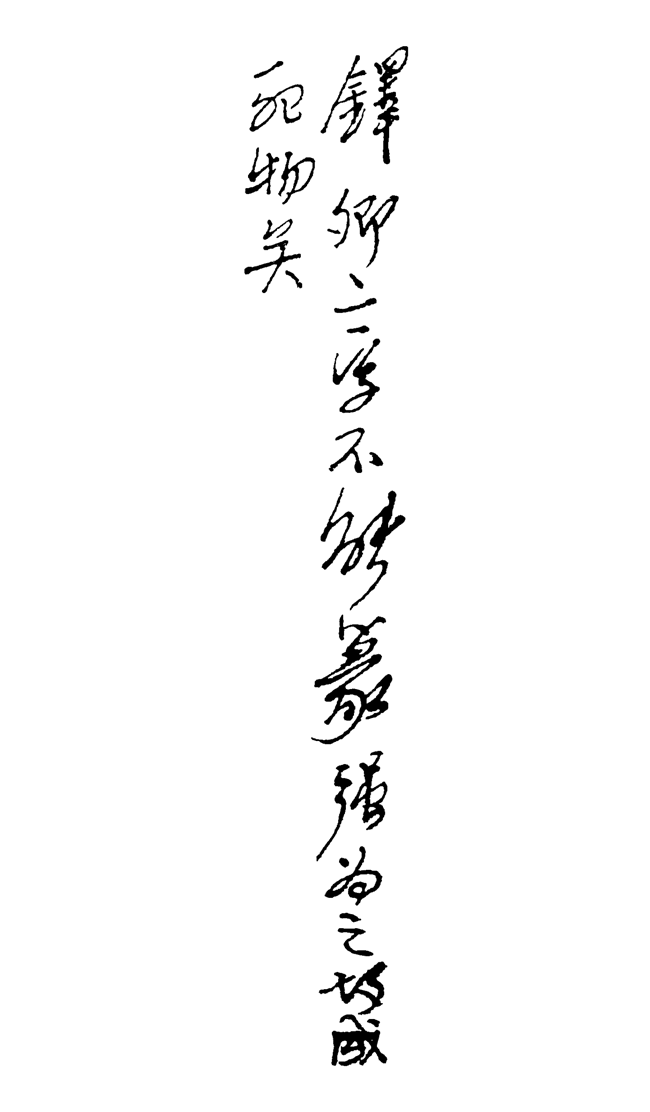 鐸卿二字不能篆強为之故成
死物矣